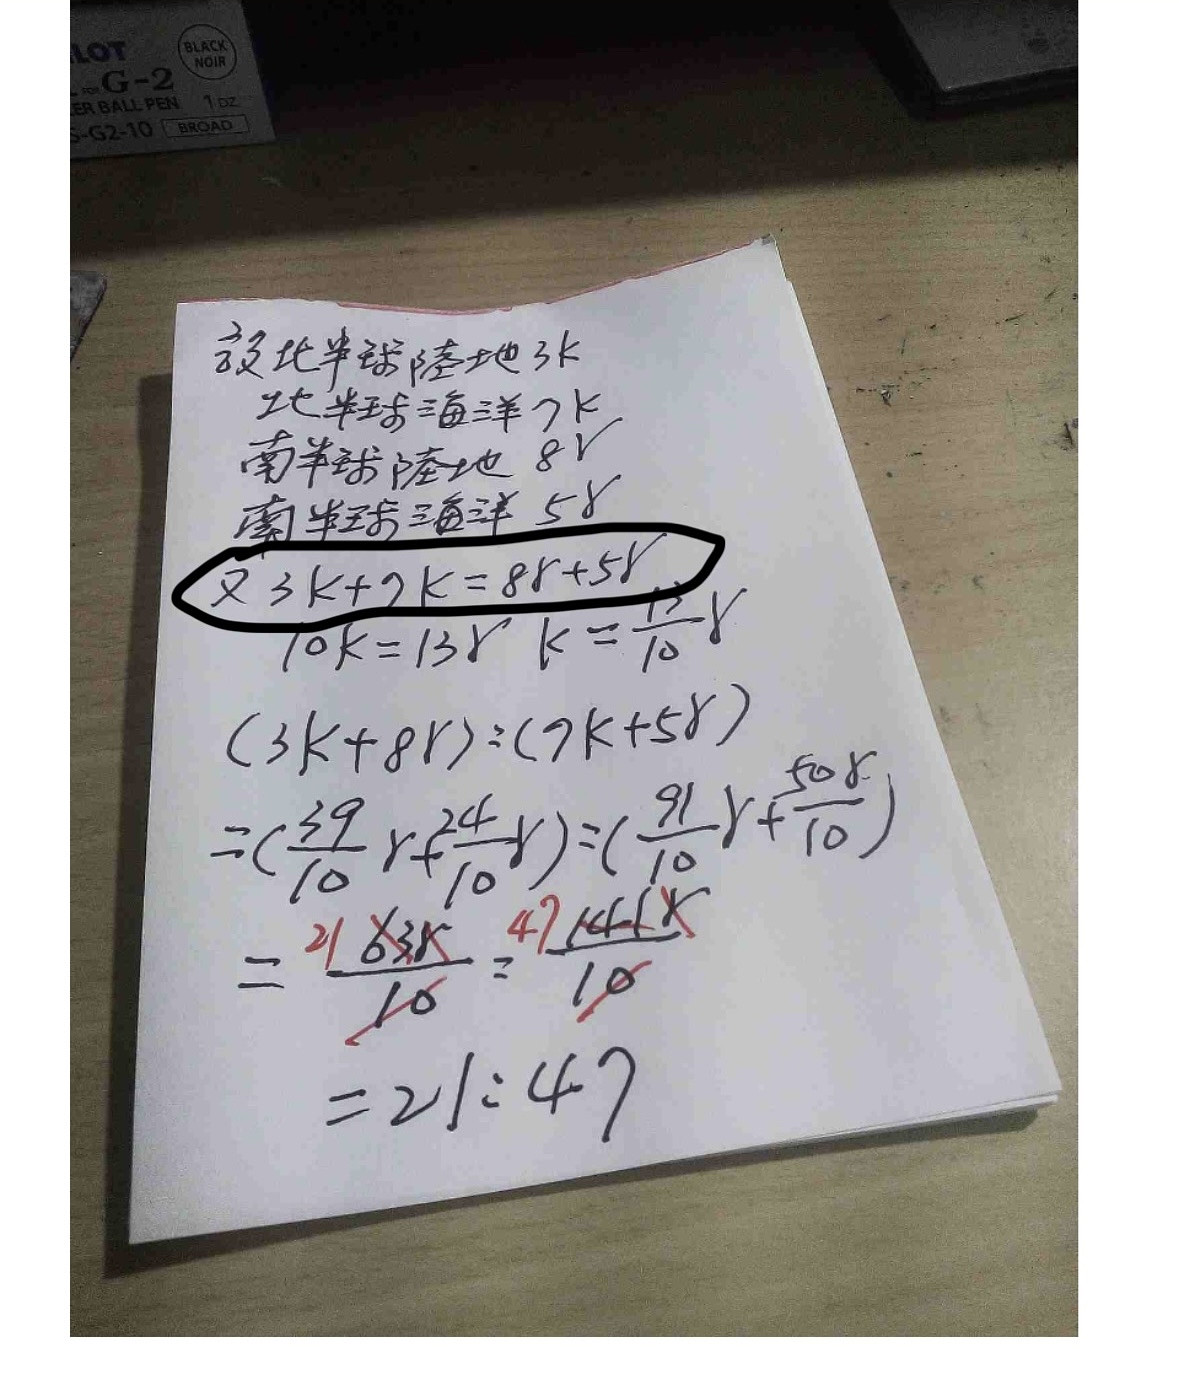 LOT
G-2
BLACK
NOIR
ER BALL PEN 1 DZ
-G2-10 BROAD
設北半球陸地3k
北半球海洋7k
南半球陸地 8r
南半球海洋 5r
又 3k+7k=8r+5r
10k=13r k=13/10 r
(3k+8r):(7k+5r)
=(39/10 r+24/10 r):(91/10 r+50r/10)
=21 63r/10 : 47 141r/10
=21:47